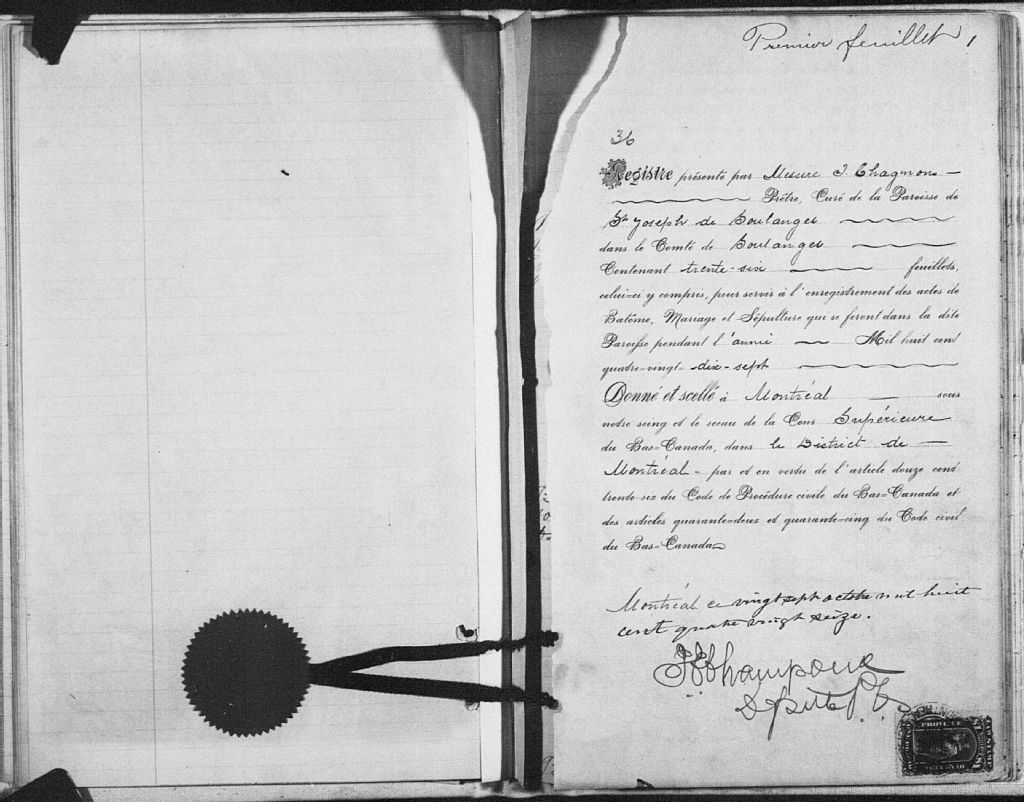 Premier feuillet 1
36
Registre présenté par Messire J. Chagnon
Prêtre, Curé de la Paroisse de
St Joseph de Soulanges
dans le Comté de Soulanges
Contenant trente-six feuillets,
celui-ci y compris, pour servir à l'enregistrement des actes de
Batême, Mariage et Sépulture qui se feront dans la dite
Paroisse pendant l'année Mil huit cent
quatre-vingt-dix-sept
Donné et scellé à Montréal sous
notre seing et le sceau de la Cour Supérieure
du Bas-Canada, dans le District de
Montréal - par et en vertu de l'article douze cent
trente-six du Code de Procédure civile du Bas-Canada et
des articles quarante-deux et quarante-cinq du Code civil
du Bas-Canada
Montréal ce vingt sept octobre mil huit
cent quatre vingt seize.
Champoux
Député P.